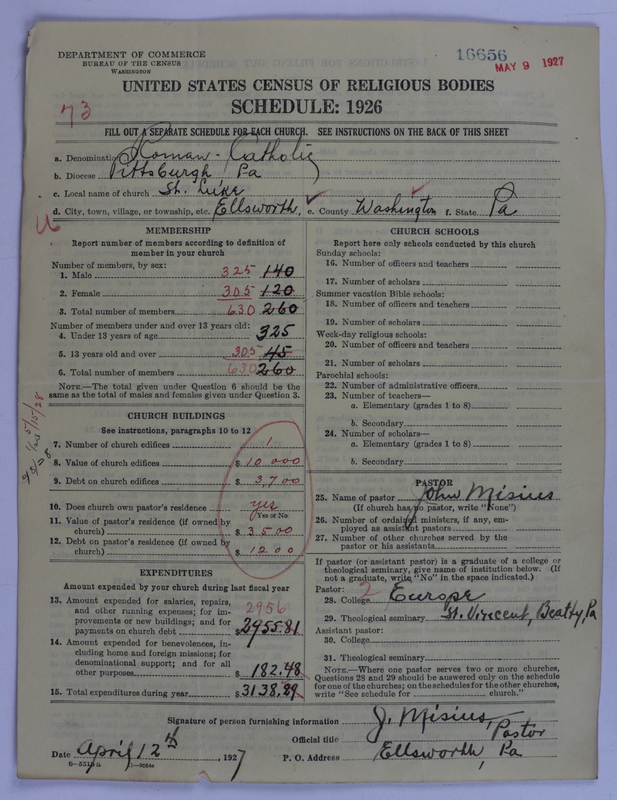 DEPARTMENT OF COMMERCE
BUREAU OF THE CENSUS
WASHINGTON
16656
MAY 9 1927
UNITED STATES CENSUS OF RELIGIOUS BODIES
SCHEDULE: 1926
73
FILL OUT A SEPARATE SCHEDULE FOR EACH CHURCH. SEE INSTRUCTIONS ON THE BACK OF THIS SHEET
a. Denomination Roman-Catholic
b. Diocese Pittsburgh, Pa
c. Local name of church St. Luke
d. City, town, village, or township, etc. Ellsworth, e. County Washington f. State Pa
MEMBERSHIP
Report number of members according to definition of
member in your church
Number of members, by sex:
1. Male 325 140
2. Female 305 120
3. Total number of members 630 260
Number of members under and over 13 years old:
4. Under 13 years of age 325
5. 13 years old and over 305 45
6. Total number of members 630 260
NOTE.—The total given under Question 6 should be the
same as the total of males and females given under Question 3.
CHURCH BUILDINGS
See instructions, paragraphs 10 to 12
7. Number of church edifices 1
8. Value of church edifices $ 10 000
9. Debt on church edifices $ 3,700
10. Does church own pastor's residence yes
Yes or No
11. Value of pastor's residence (if owned by
church) $ 3500
12. Debt on pastor's residence (if owned by
church) $ 1200
EXPENDITURES
Amount expended by your church during last fiscal year
13. Amount expended for salaries, repairs,
and other running expenses; for im-
provements or new buildings; and for
payments on church debt 2956 $2955.81
14. Amount expended for benevolences, in-
cluding home and foreign missions; for
denominational support; and for all
other purposes $ 182.48
15. Total expenditures during year $3138.29
CHURCH SCHOOLS
Report here only schools conducted by this church
Sunday schools:
16. Number of officers and teachers
17. Number of scholars
Summer vacation Bible schools:
18. Number of officers and teachers
19. Number of scholars
Week-day religious schools:
20. Number of officers and teachers
21. Number of scholars
Parochial schools:
22. Number of administrative officers
23. Number of teachers—
a. Elementary (grades 1 to 8)
b. Secondary
24. Number of scholars—
a. Elementary (grades 1 to 8)
b. Secondary
PASTOR
25. Name of pastor John Misius
(If church has no pastor, write "None")
26. Number of ordained ministers, if any, em-
ployed as assistant pastors
27. Number of other churches served by the
pastor or his assistants
If pastor (or assistant pastor) is a graduate of a college or
theological seminary, give name of institution below. (If
not a graduate, write "No" in the space indicated.)
Pastor:
28. College 2 Europe
29. Theological seminary St. Vincent, Beatty, Pa
Assistant pastor:
30. College
31. Theological seminary
NOTE.—Where one pastor serves two or more churches,
Questions 28 and 29 should be answered only on the schedule
for one of the churches; on the schedules for the other churches,
write "See schedule for church."
Signature of person furnishing information J. Misius,
Official title Pastor
Date April 12th, 1927 P. O. Address Ellsworth, Pa